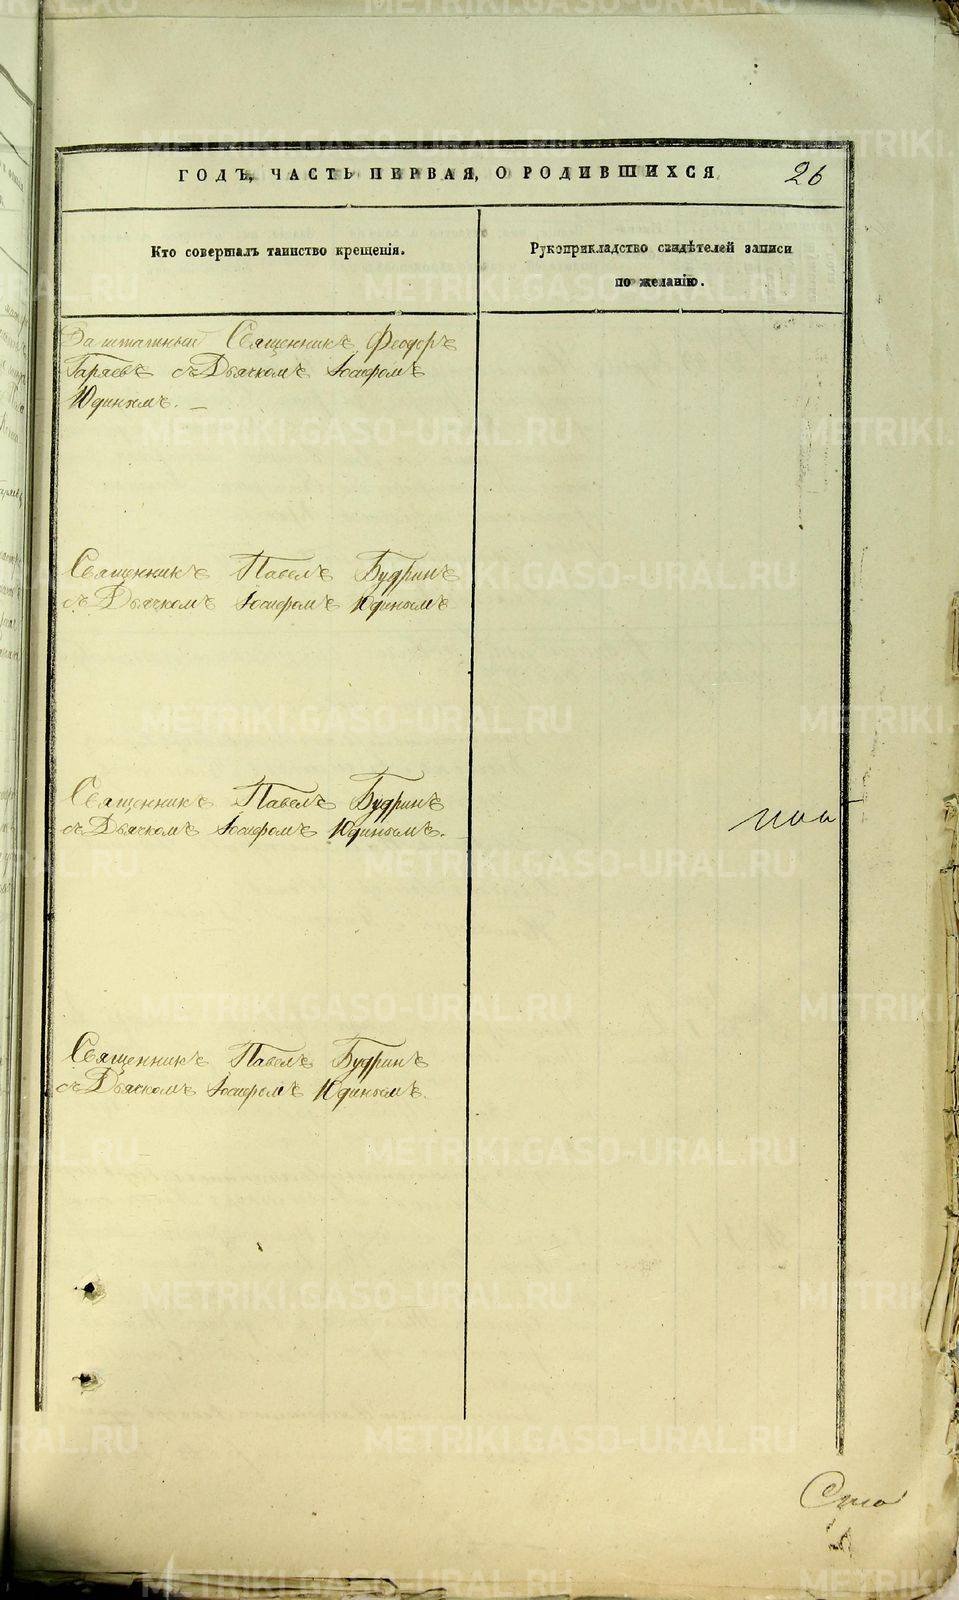 ГОДЪ, ЧАСТЬ ПЕРВАЯ, О РОДИВШИХСЯ
26
Кто совершалъ таинство крещенія.
Рукоприкладство свидѣтелей записи
по желанію.
Заштатный Священникъ Феодоръ
Гаряевъ съ Дьячкомъ Іосифомъ
Юдинымъ.
Священникъ Павелъ Будринъ
съ Дьячкомъ Іосифомъ Юдинымъ
Священникъ Павелъ Будринъ
съ Дьячкомъ Іосифомъ Юдинымъ.
Священникъ Павелъ Будринъ
съ Дьячкомъ Іосифомъ Юдинымъ.
METRIKI.GASO-URAL.RU